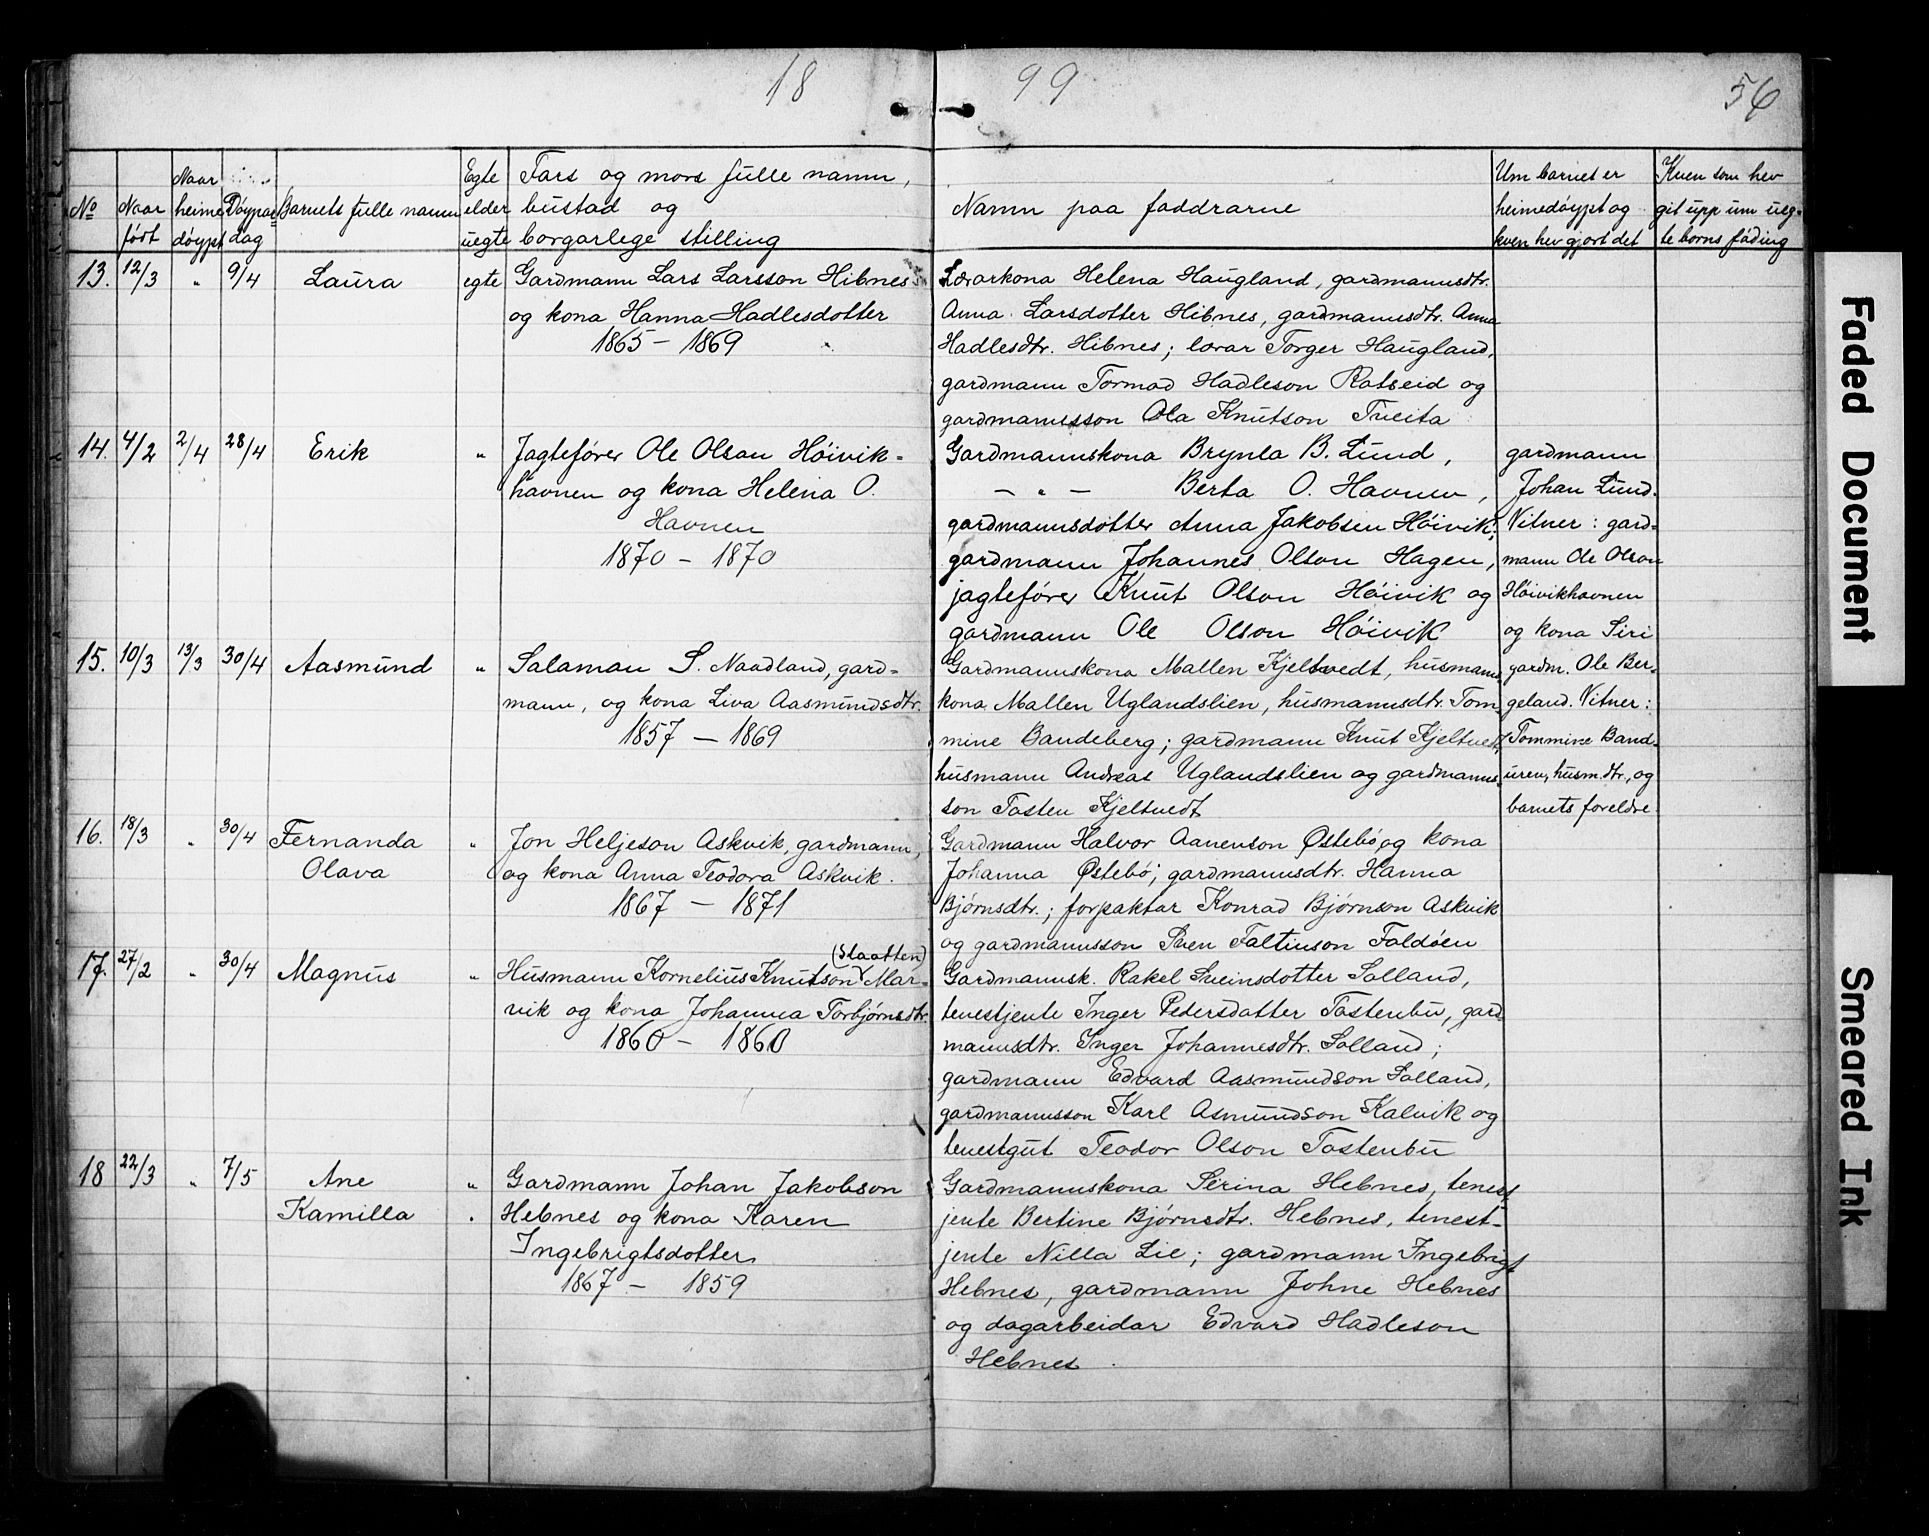 18 99 56
No
Naar født
Naar heime døypt
Døypar dag
Barnets fulle namn
Egte elder uegte
Fars og mors fulle namn,
bustad og
borgarlege stilling
Namn paa faddrarne
Um barnet er
heimedøypt og
kven hev gjort det
Kven som hev
git upp um ueg-
te borns fading
13. 12/3 " 9/4 Laura egte
Gardmann Lars Larsson Hibnes
og kona Hanna Hadlesdotter
1865 - 1869
Lærarkona Helena Haugland, gardmannsdtr.
Anna Larsdotter Hibnes, gardmannsdtr. Anna
Hadlesdtr. Hibnes; lærar Torger Haugland,
gardmann Tormod Hadleson Ratseid og
gardmannsson Ola Knutson Tveita
14. 4/2 2/4 28/4 Erik "
Jagtefører Ole Olson Høivik-
havnen og kona Helena O.
Havnen
1870 - 1870
Gardmannskona Brynla B. Lund,
- " - Berta O. Havnen,
gardmannsdotter Anna Jakobsen Høivik;
gardmann Johannes Olson Hagen,
jagtefører Knut Olson Høivik og
gardmann Ole Olson Høivik
gardmann
Johan Lund.
Vitner: gard-
mann Ole Olson
Høivikhavnen
og kona Siri
15. 10/3 13/3 30/4 Aasmund "
Salaman S. Naadland, gard-
mann, og kona Liva Aasmundsdtr.
1857 - 1869
Gardmannskona Mallen Kjeltvedt, husmanns-
kona Mallen Uglandslien, husmannsdtr. Tom-
mine Bandeberg; gardmann Knut Kjeltvedt,
husmann Andreas Uglandslien og gardmanns-
son Tosten Kjeltvedt
gardm. Ole Ber-
geland. Vitner:
Tommine Band-
uren, husm.dtr., og
barnets foreldre.
16. 18/3 " 30/4 Fernanda
Olava "
Jon Heljeson Askvik, gardmann,
og kona Anna Teodora Askvik.
1867 - 1871
Gardmann Halvor Aanenson Østebø og kona
Johanna Østebø; gardmannsdtr. Hanna
Bjørnsdtr.; forpaktar Konrad Bjørnson Askvik
og gardmannsson Sven Faltinson Foldøen
17. 27/2 " 30/4 Magnus "
(Slaatten)
Husmann Kornelius Knutson Mar-
vik og kona Johanna Torbjørnsdtr.
1860 - 1860
Gardmannsk. Rakel Sveinsdotter Solland,
tenestjente Inger Pedersdatter Tostenbu, gard-
mannsdtr. Inger Johannesdtr. Solland;
gardmann Edvard Aasmundson Solland,
gardmannsson Karl Asmundson Kalvik og
tenestgut Teodor Olson Tostenbu
18 22/3 " 7/5 Ane
Kamilla "
Gardmann Johan Jakobson
Hebnes og kona Karen
Ingebrigtsdotter
1867 - 1859
Gardmannskona Serina Hebnes, tenest
jente Bertine Bjørnsdtr. Hebnes, tenest-
jente Nilla Lie; gardmann Ingebrigt
Hebnes, gardmann Johne Hebnes
og dagarbeidar Edvard Hadleson
Hebnes.
Faded Document
Smeared Ink